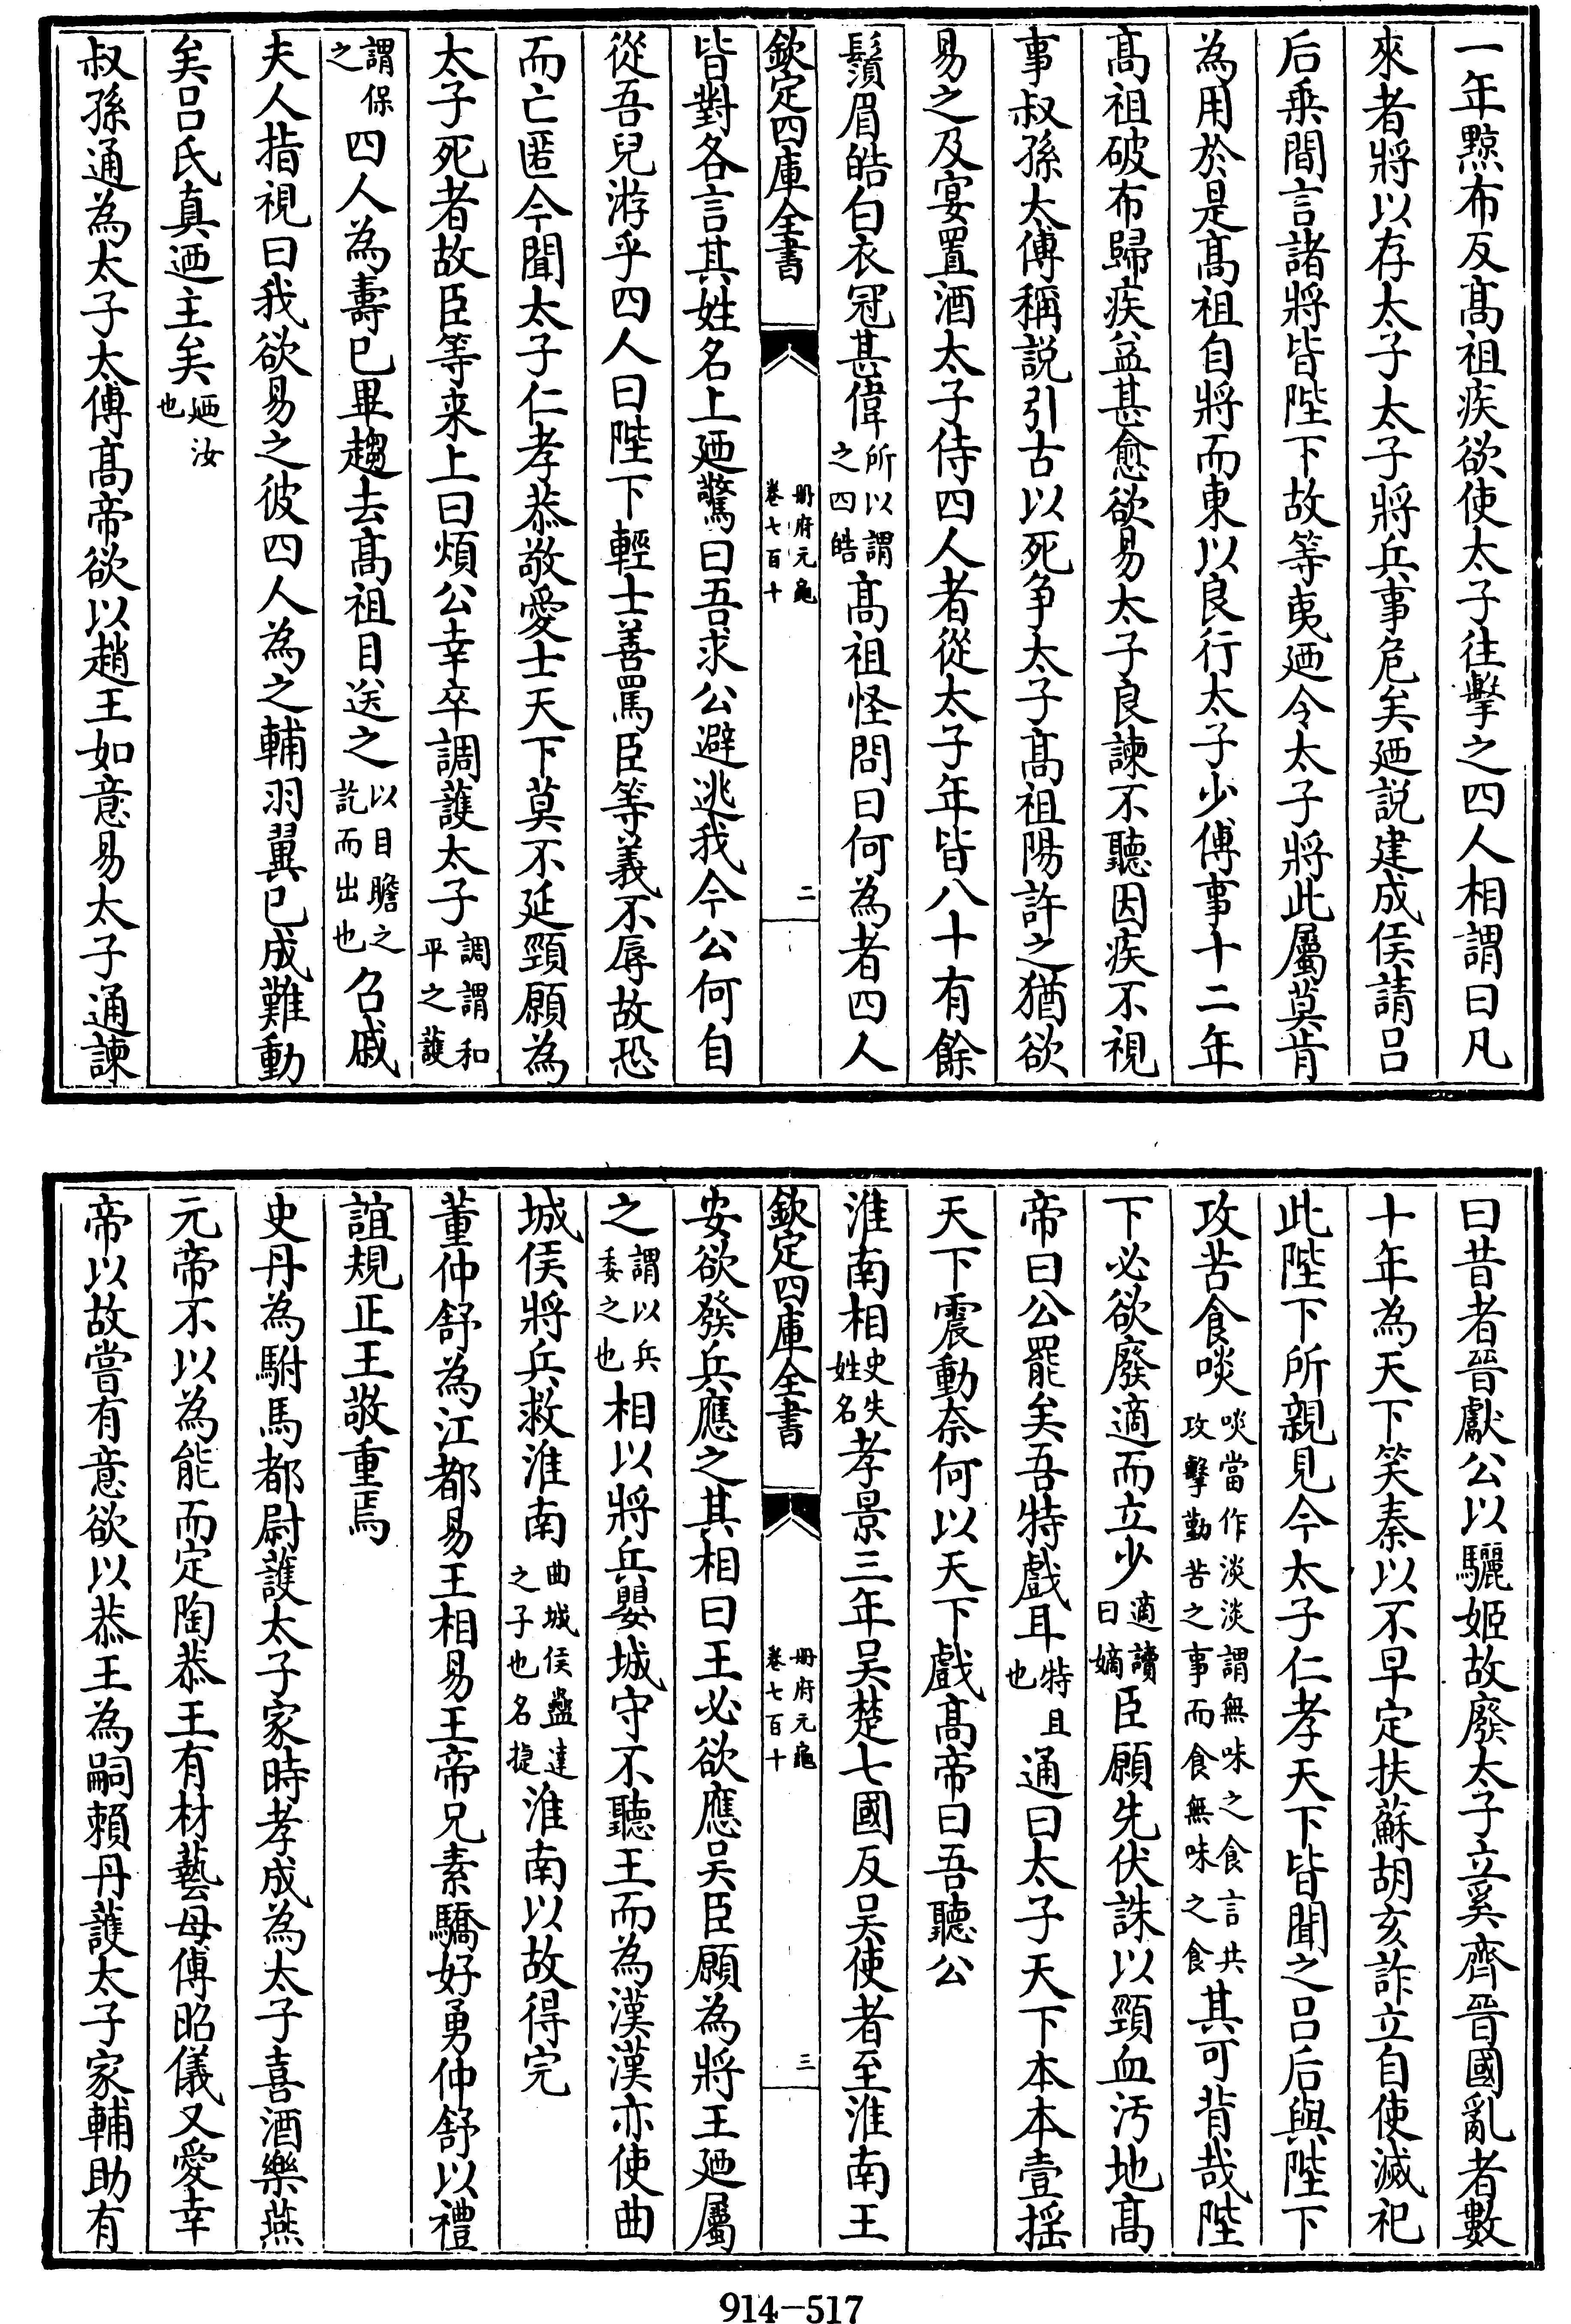 一年黥布反髙祖疾欲使太子往擊之四人相謂曰凡
來者將以存太子太子將兵事危矣廼説建成侯請吕
后乗間言諸將皆陛下故等夷廼令太子將此屬莫肯
為用於是髙祖自將而東以良行太子少傅事十二年
髙祖破布歸疾益甚愈欲易太子良諫不聽因疾不視
事叔孫太傅稱説引古以死争太子髙祖陽許之猶欲
易之及宴置酒太子侍四人者從太子年皆八十有餘
鬚眉皓白衣冠甚偉所以謂之四皓髙祖怪問曰何為者四人
欽定四庫全書 册府元龜卷七百十 二
皆對各言其姓名上廼驚曰吾求公避逃我今公何自
從吾兒游乎四人曰陛下輕士善罵臣等義不辱故恐
而亡匿今聞太子仁孝恭敬愛士天下莫不延頸願為
太子死者故臣等来上曰煩公幸卒調䕶太子調謂和平之䕶
謂保之四人為壽已畢趨去髙祖目送之以目瞻之訖而出也召戚
夫人指視曰我欲易之彼四人為之輔羽翼已成難動
矣吕氏真迺主矣廼汝也
叔孫通為太子太傅髙帝欲以趙王如意易太子通諫
曰昔者晉獻公以驪姬故廢太子立奚齊晉國亂者數
十年為天下笑秦以不早定扶蘇胡亥詐立自使滅祀
此陛下所親見今太子仁孝天下皆聞之吕后與陛下
攻苦食啖啖當作淡淡謂無味之食言共攻擊勤苦之事而食無味之食其可背哉陛
下必欲廢適而立少適讀曰嫡臣願先伏誅以頸血汚地髙
帝曰公罷矣吾特戲耳特且也通曰太子天下本本壹揺
天下震動奈何以天下戲髙帝曰吾聽公
淮南相史失姓名孝景三年吴楚七國反吴使者至淮南王
欽定四庫全書 册府元龜卷七百十 三
安欲發兵應之其相曰王必欲應吴臣願為將王廼屬
之謂以兵委之也相以將兵嬰城守不聽王而為漢漢亦使曲
城侯將兵救淮南曲城侯蠱達之子也名捷淮南以故得完
董仲舒為江都易王相易王帝兄素驕好勇仲舒以禮
誼規正王敬重焉
史丹為駙馬都尉䕶太子家時孝成為太子喜酒樂燕
元帝不以為能而定陶恭王有材藝母傅昭儀又愛幸
帝以故嘗有意欲以恭王為嗣賴丹䕶太子家輔助有
914—517